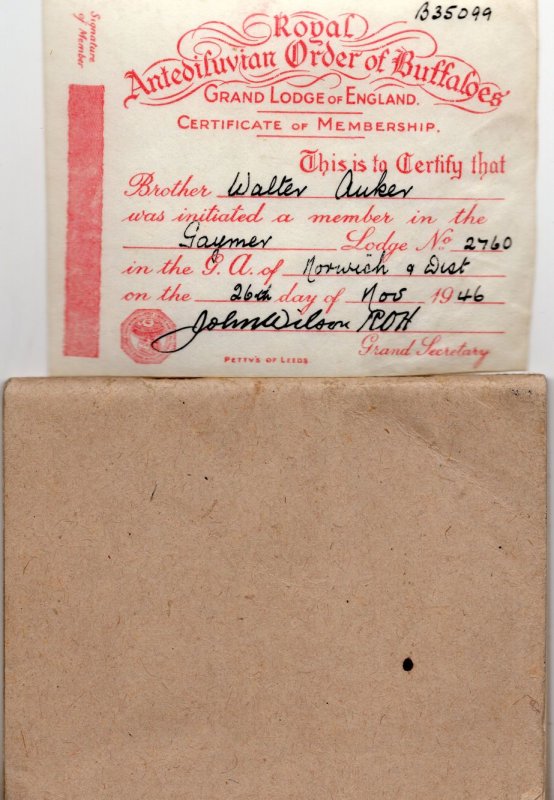 B35099
Signature
of Member
Royal
Antediluvian Order of Buffaloes
GRAND LODGE OF ENGLAND.
CERTIFICATE OF MEMBERSHIP.
This is to Certify that
Brother Walter Auker
was initiated a member in the
Gaymer Lodge No 2760
in the G. A. of Norwich & Dist
on the 26th day of Nov 1946
John Wilson ROH
Grand Secretary
PETTY'S OF LEEDS